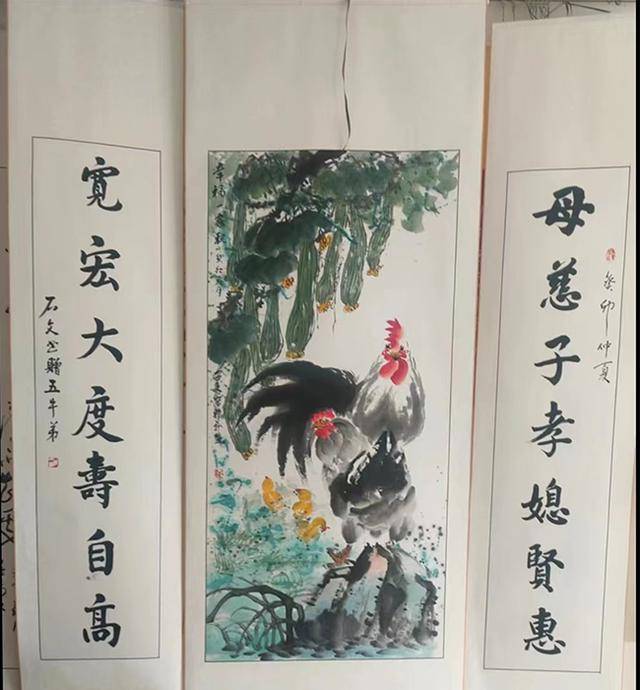 癸卯仲夏
母慈子孝媳賢惠
幸福
寬宏大度壽自高
石文书贈五牛弟